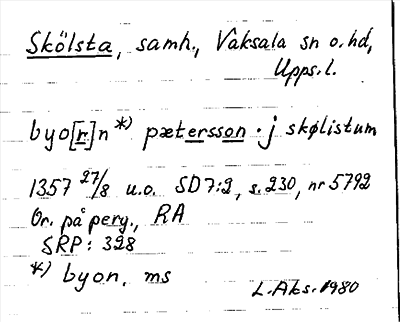 Skölsta, samh., Vaksala sn o. hd,
Upps. l.
byo[r]n *) pætersson · j skølistum
1357 27/8 u.o. SD 7:2, s. 230, nr 5792
Or. på perg., RA
SRP: 328
*) byon, ms
L. Aks. 1980